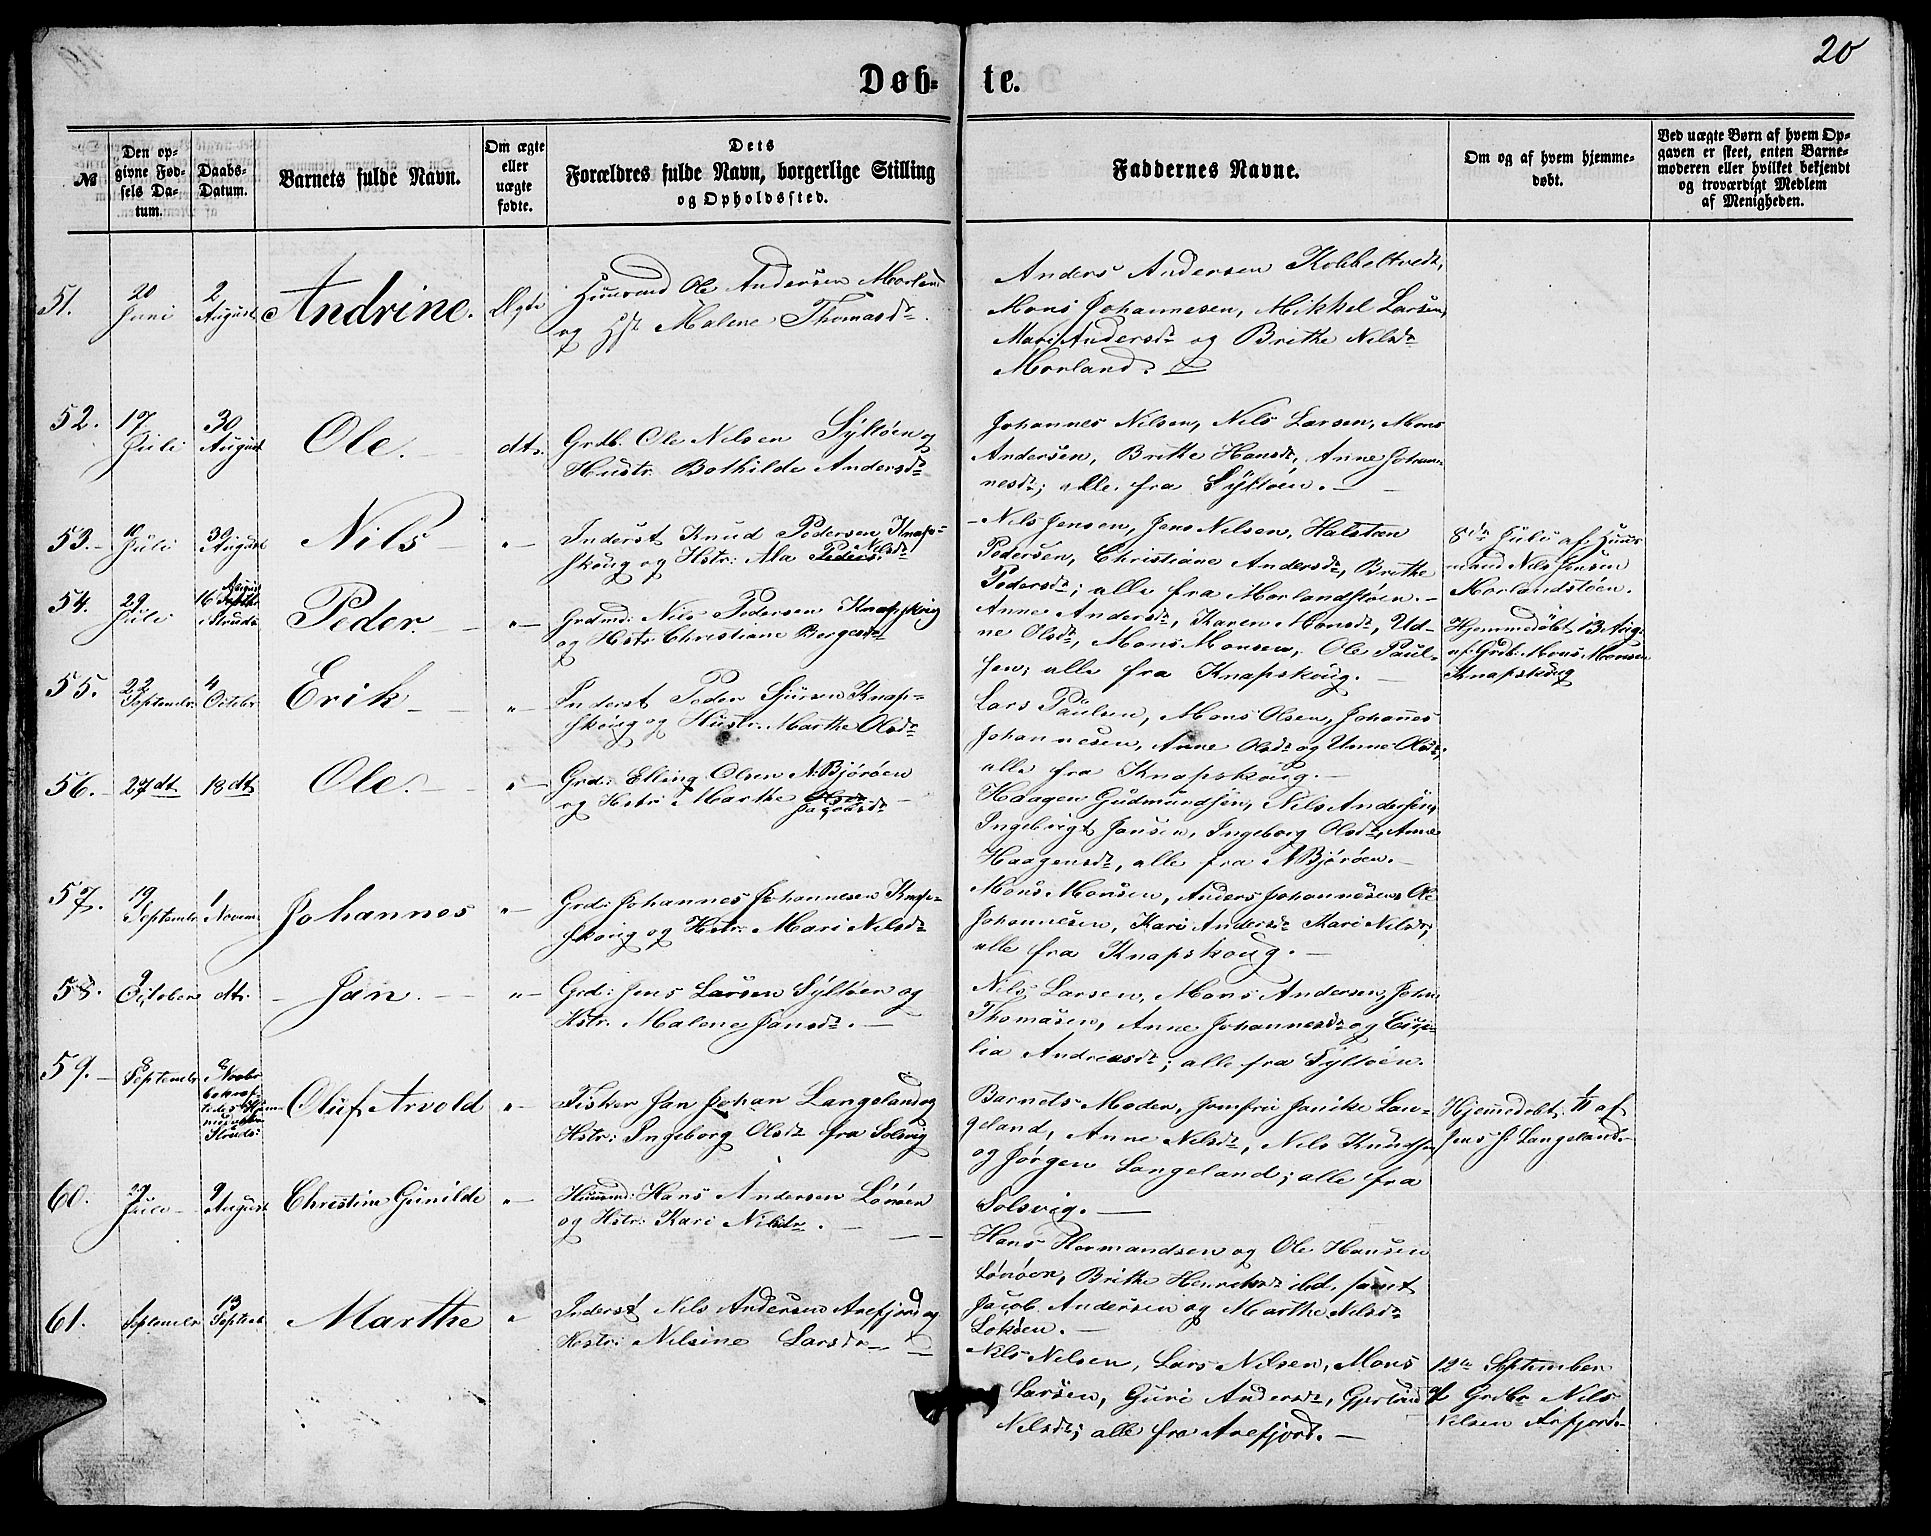 20
Døb- te.
№
Den opgivne Fødsels Datum.
Daabs-Datum.
Barnets fulde Navn.
Om ægte eller uægte fødte.
Dets Forældres fulde Navn, borgerlige Stilling og Opholdssted.
Faddernes Navne.
Om og af hvem hjemmedøbt.
Ved uægte Børn af hvem Opgaven er skeet, enten Barnemoderen eller hvilket bekjendt og troværdigt Medlem af Menigheden.
51. 20 Juni 2 August Andrine. Ægte
Huusmd Ole Andersen Morland
og Hst Malene Thomasdr.
Anders Andersen Kobbeltvedt,
Mons Johannesen, Mikkel Larsen,
Mari Andersdr og Brithe Nilsdr
Morland.
52. 17 Juli 30 August Ole. dto.
Grdb. Ole Nilsen Syltøen og
Hustr. Bothilde Andersdr
Johannes Nilsen, Nils Larsen, Mons
Andersen, Britte Hansdr, Anne Johan-
nesdr; alle fra Syltøen.
53. 10 Juli 30 August Nils "
Inderst Knud Pedersen Knap-
skoug og Hstr: Ala Nilsdr
Nils Jensen, Jens Nilsen, Halsten
Pedersen, Christiane Andersdr, Brithe
Pedersdr; alle fra Morlandstøen.
Juli af Huus-
mand Nils Jensen
Morlandstøen.
54. 29 Juli 16 August i Strudsh. Peder. "
Grdmd: Nils Pedersen Knapskoug
og Hstr: Christiane Bergesdr
Anne Andersdr, Karen Monsdr, Ud-
ne Olsdr, Mons Monsen, Ole Paul-
sen; alle fra Knapskoug.
Hjemmedøbt 13 Aug.
af Grdb. Mons Monsen
Knapskoug
55. 22 September 4 October Erik "
Inderst Peder Sjursen Knap-
skoug og Hustr: Marthe Olsdr
Lars Paulsen, Mons Olsen, Johannes
Johannesen, Anne Olsdr og Unne Olsdr;
alle fra Knapskoug.
56. 27 dt 18 dt Ole. "
Grd: Elling Olsen N: Bjørøen
og Hstr: Marthe
Haagen Gudmundsen, Nils Andersen,
Ingebrigt Jansen, Ingeborg Olsdr, Anne
Haagensdr, alle fra N Bjørøen.
57. 19 September 1 Novem: Johannes "
Grd: Johannes Johannesen Knap-
skoug og Hstr: Mari Nilsdr
Mons Monsen, Anders Johannesen, Ole
Johannesen, Kari Andersdr Kari Nilsdr;
alle fra Knapskoug.
58. 9 October dto. Jan. "
Grd: Jens Larsen Syltøen og
Hstr. Malene Jansdr.
Nils Larsen, Mons Andersen, John
Thomasen, Anne Johannesdr og Ceci-
lia Andreasdr; alle fra Syltøen.
59. 8 September Oluf Arvold "
Fisker Jan Johan Langeland og
Hstr: Ingeborg Olsdr fra Solsvig
Barnets Moder, Jomfru Janike Lan-
geland, Anne Nilsdr, Nils Knudsen
og Jørgen Langeland; alle fra
Solsvig.
Hjemmedøbt af
Jens J. Langeland.
60. Juli 9 August Christine Gunilde "
Huusmd: Hans Andersen Lønøen
og Hstr: Kari Nilsdr.
Hans Hermandsen og Ole Hansen
Lønøen, Brithe Henriksdr ibd. samt
Jacob Andersen og Marthe Nilsdr
Løkøen.
61. September 13 Septemb Marthe "
Inderst Nils Andersen Arefjord og
Hstr: Nilsine Larsdr
Nils Nilsen, Lars Nilsen, Mons
Larsen, Guri Andersdr, Gjertrud
Nilsdr; alle fra Arefjord.
12te September
af Grdbr Nils
Nilsen Arefjord.